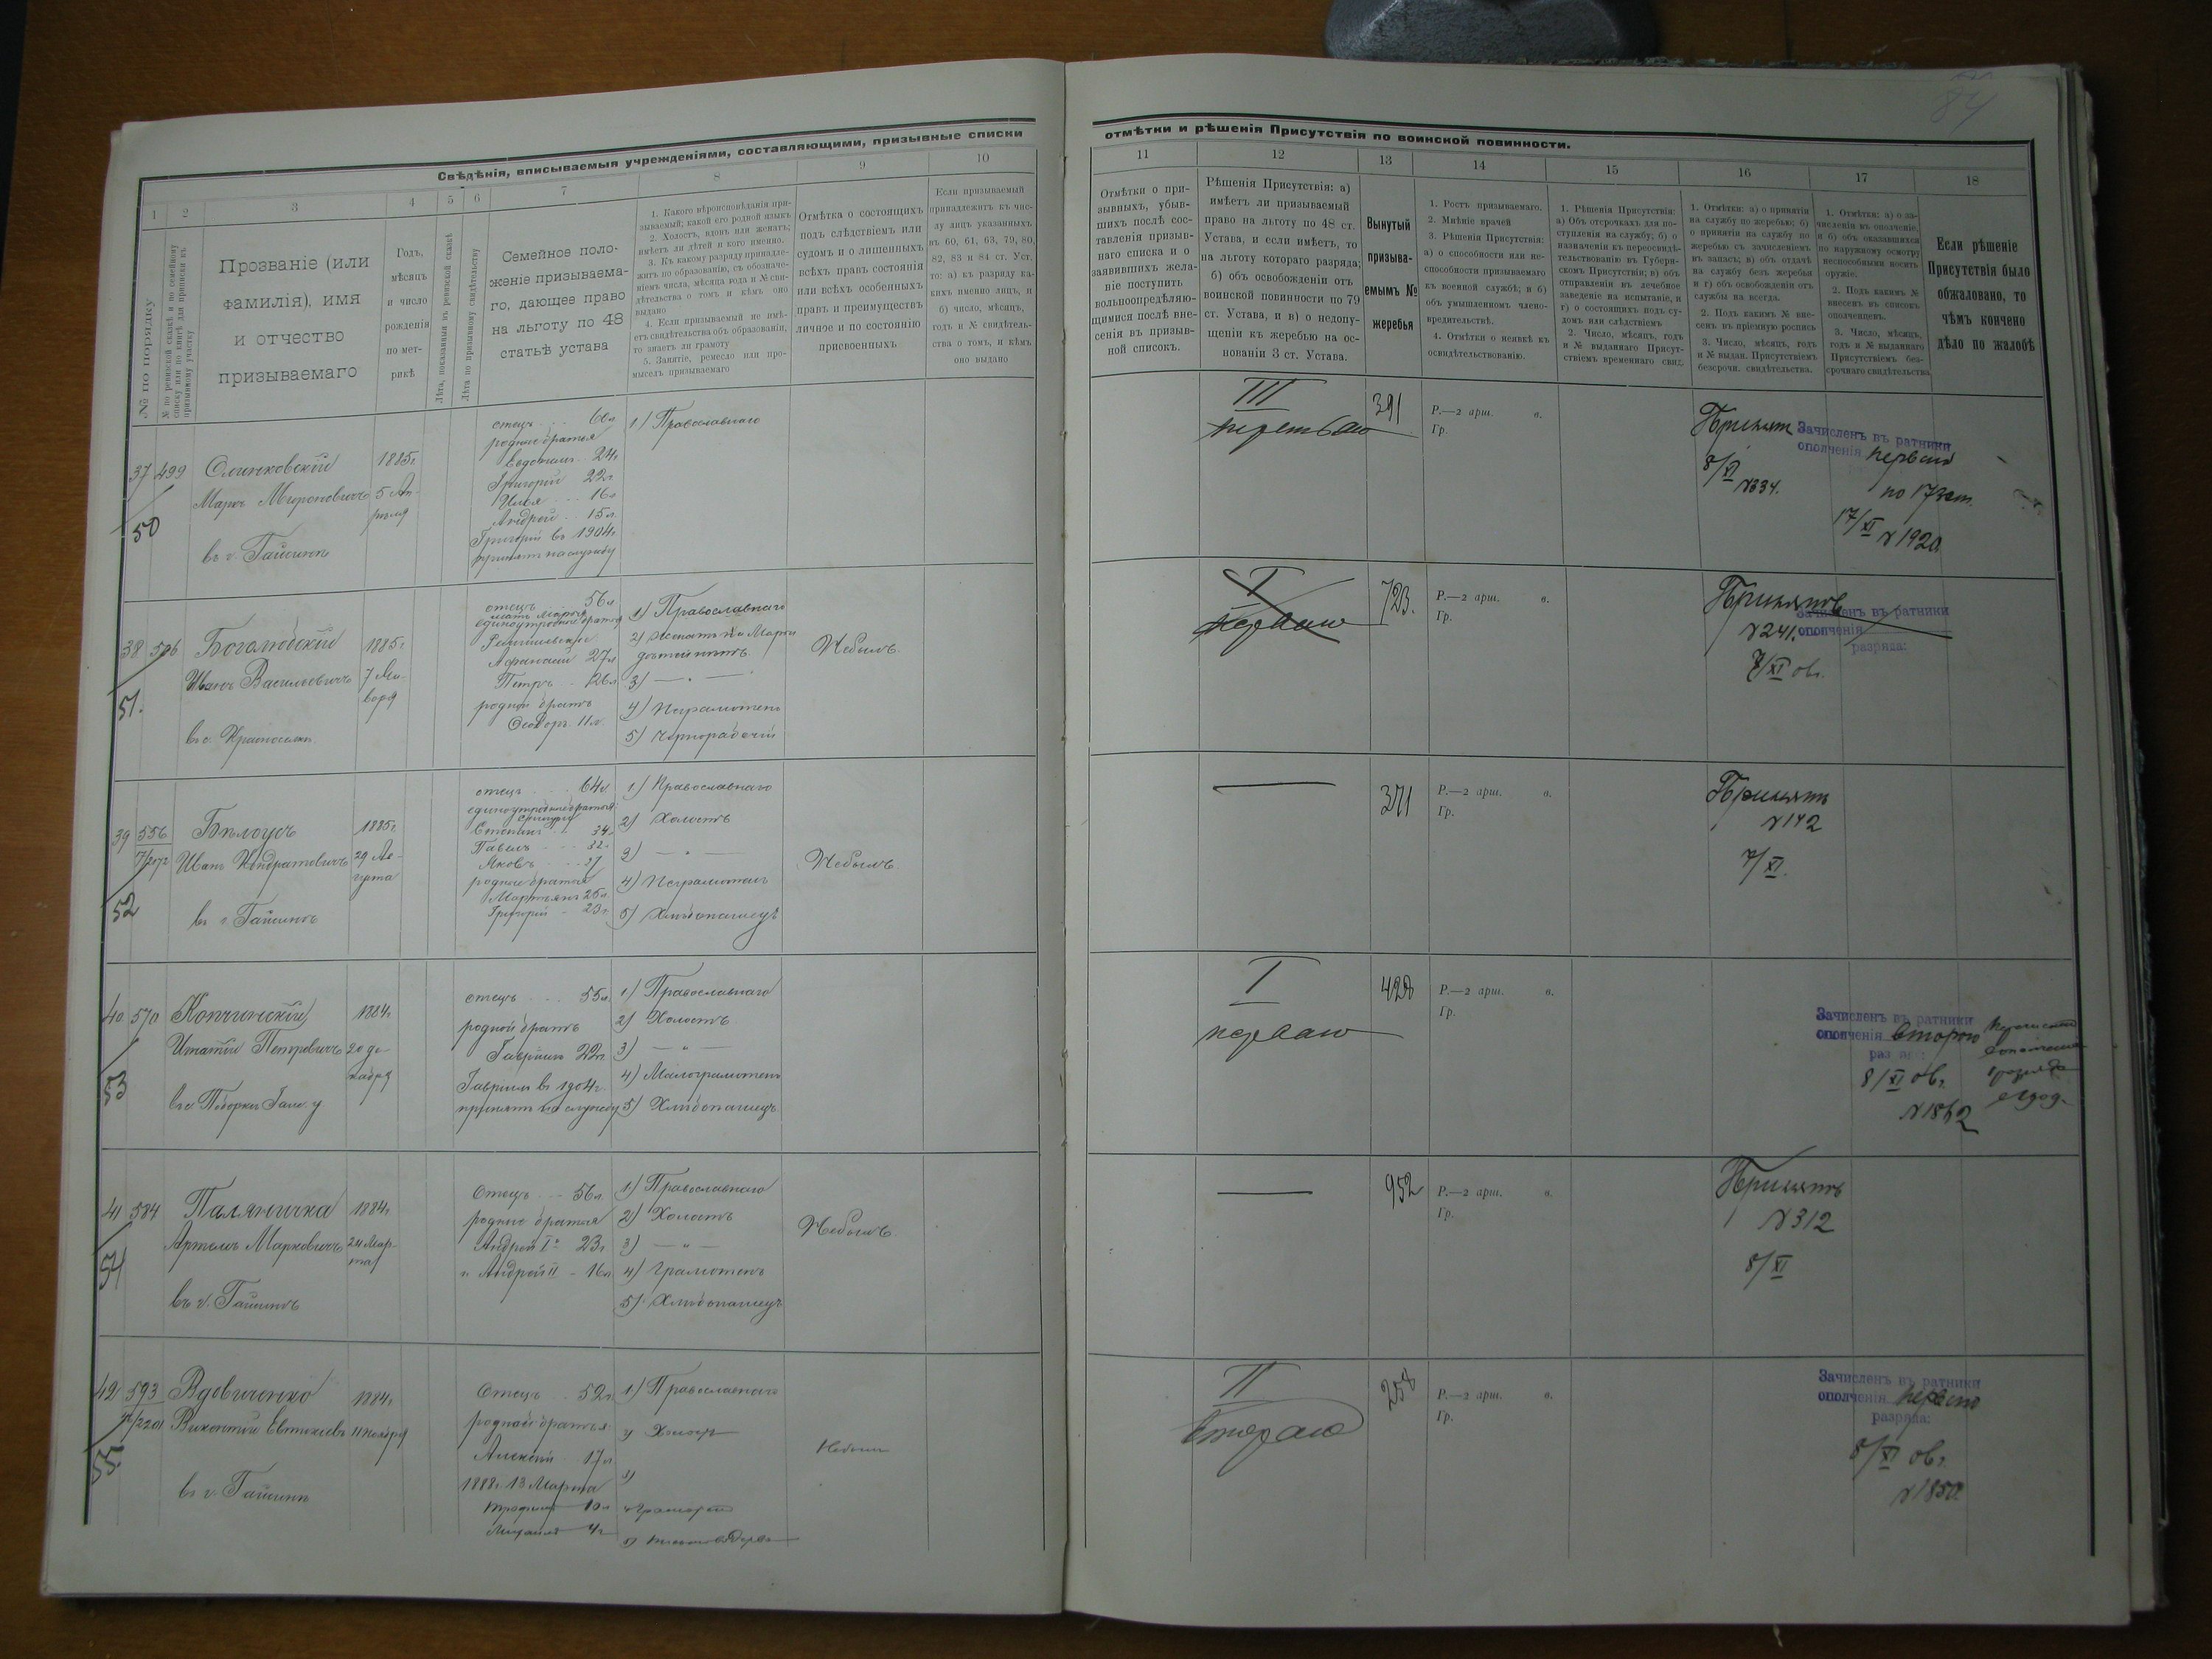 84
Свѣдѣнія, вписываемыя учрежденіями, составляющими, призывные списки
отмѣтки и рѣшенія Присутствія по воинской повинности.
1 2 3 4 5 6 7 8 9 10
11 12 13 14 15 16 17 18
№ по порядку
№ по ревизской сказкѣ и по семейному
списку или по книгѣ для приписки къ
призывному участку
Прозваніе (или
фамилія), имя
и отчество
призываемаго
Годъ,
мѣсяцъ
и число
рожденія
по мет-
рикѣ
Лѣта, показанныя въ ревизской сказкѣ
Лѣта по призывному свидѣтельству
Семейное поло-
женіе призываема-
го, дающее право
на льготу по 48
статьѣ устава
1. Какого вѣроисповѣданія при-
зываемый; какой его родной языкъ
2. Холостъ, вдовъ или женатъ;
имѣетъ ли дѣтей и кого именно.
3. Къ какому разряду принадле-
житъ по образованію, съ обозначе-
ніемъ числа, мѣсяца года и № сви-
дѣтельства о томъ и кѣмъ оно
выдано
4. Если призываемый не имѣ-
етъ свидѣтельства объ образованіи,
то знаетъ ли грамоту
5. Занятіе, ремесло или про-
мыселъ призываемаго
Отмѣтка о состоящихъ
подъ слѣдствіемъ или
судомъ и о лишенныхъ
всѣхъ правъ состоянія
или всѣхъ особенныхъ
правъ и преимуществъ
личное и по состоянію
присвоенныхъ
Если призываемый
принадлежитъ къ чис-
лу лицъ указанныхъ
въ 60, 61, 63, 79, 80,
82, 83 и 84 ст. Уст.
то: а) къ разряду ка-
кихъ именно лицъ, и
б) число, мѣсяцъ,
годъ и № свидѣтель-
ства о томъ, и кѣмъ
оно выдано
Отмѣтки о при-
зывныхъ, убыв-
шихъ послѣ сос-
тавленія призыв-
наго списка и о
заявившихъ жела-
ніе поступить
вольноопредѣляю-
щимися послѣ вне-
сенія въ призыв-
ной списокъ.
Рѣшенія Присутствія: а)
имѣетъ ли призываемый
право на льготу по 48 ст.
Устава, и если имѣетъ, то
на льготу котораго разряда;
б) объ освобожденіи отъ
воинской повинности по 79
ст. Устава, и в) о недопу-
щеніи къ жеребью на ос-
нованіи 3 ст. Устава.
Вынутый
призыва-
емымъ №
жеребья
1. Ростъ призываемаго.
2. Мнѣніе врачей
3. Рѣшенія Присутствія:
а) о способности или не-
способности призываемаго
къ военной службѣ; и б)
объ умышленном члено-
вредительствѣ.
4. Отмѣтки о неявкѣ къ
освидѣтельствованію.
1. Рѣшенія Присутствія:
а) Объ отсрочкахъ для по-
ступленія на службу; б) о
назначеніи къ переосвидѣ-
тельствованію въ Губерн-
скомъ Присутствіи; в) объ
отправленіи въ лечебное
заведеніе на испытаніе, и
г) о состоящихъ подъ су-
домъ или слѣдствіемъ
2. Число, мѣсяцъ, годъ
и № выданнаго Присут-
ствіемъ временнаго свид.
1. Отмѣтки: а) о принятіи
на службу по жеребью; б)
о принятіи на службу по
жеребью съ зачисленіемъ
въ запасъ; в) объ отдачѣ
на службу безъ жеребья
и г) объ освобожденіи отъ
службы на всегда.
2. Подъ какимъ № вне-
сенъ въ пріемную роспись
3. Число, мѣсяцъ, годъ
и № выдан. Присутствіемъ
безсрочн. свидѣтельства.
1. Отмѣтки: а) о за-
численіи въ ополченіе,
и б) объ оказавшихся
по наружному осмотру
неспособными носить
оружіе.
2. Подъ какимъ №
внесенъ въ списокъ
ополченцевъ.
3. Число, мѣсяцъ,
годъ и № выданнаго
Присутствіемъ без-
срочнаго свидѣтельства
Если рѣшеніе
Присутствія было
обжаловано, то
чѣмъ кончено
дѣло по жалобѣ
37 499
50
Слинковскій
Маркъ Мироновичъ
въ г. Гайсинѣ
1885г.
5 Ап-
рѣля
отецъ 60л
родные братья
Евдокимъ 24л
Григорій 22л
Илья 16л
Андрей 15л
Григорій въ 1904г.
принятъ на службу
1) Православнаго
III
391
Р.—2 арш. в.
Гр.
Принят
8/XI №334.
Зачисленъ въ ратники
ополченія перваго
по 17 ст.
17/XI №1920
38 506
51.
Боголюбскій
Иванъ Васильевичъ
в с. Кратосіцкѣ
1885г
7 Ян-
варя
отецъ 56л
мать Марія
единоутробные братья
Афанасій 27л
Петръ 26л
родной братъ
Ѳедоръ 11л.
1) Православнаго
2) Женатъ на Маріи
дѣтей нѣтъ
3) — " —
4) Неграмотенъ
5) Чернорабочій
Небылъ
I
перваго
723.
Р.—2 арш. в.
Гр.
Принятъ
№241.
7/XI 06г.
Зачисленъ въ ратники
ополченія
разряда:
39 556
52
Бѣлоусъ
Иванъ Кондратовичъ
въ г. Гайсинѣ
1885г.
29 Ав-
густа
отецъ 64л
единоутробные братья:
Степанъ 34л
Павелъ 32л
Яковъ 27
родные братья
Мартынъ 25л
Григорій 23г.
1) Православнаго
2) Холостъ
3) — " —
4) Неграмотенъ
5) Хлѣбопашецъ
Небылъ
371
Р.—2 арш. в.
Гр.
Принятъ
№142
7/XI.
40 570
53
Копчинскій
Игнатій Петровичъ
в с. Поборкѣ Гайс. у.
1884г
20 де-
кабря
отецъ 55л
родной братъ
Гавріилъ 22г.
Гавріилъ въ 1904г.
принятъ на службу
1) Православнаго
2) Холостъ
3) — " —
4) Малограмотенъ
5) Хлѣбопашецъ
I
перваго
428
Р.—2 арш. в.
Гр.
Зачисленъ въ ратники
ополченія Второго
разряда:
8/XI 06г.
№1862
41 584
54
Паляничка
Артемъ Марковичъ
въ г. Гайсинѣ
1884г
24 Мар-
та
Отецъ 56л
родные братья
Андрей I 23г
" Андрей II 16л
1) Православнаго
2) Холостъ
3) — " —
4) Грамотенъ
5) Хлѣбопашецъ
Небылъ
952
Р.—2 арш. в.
Гр.
Принятъ
№312
8/XI
42 593
55
Вдовиченко
Викентій Евтихіевъ
въ г. Гайсинѣ
1884г
11 ноября
Отецъ 52г
родные братья
Алексѣй 17л
1888г. 13 Марта
Трофимъ 10л
Михаилъ 4г
1) Православнаго
2) Холостъ
3)
5)
Небылъ
II
Втораго
258
Р.—2 арш. в.
Гр.
Зачисленъ въ ратники
ополченія перваго
разряда:
8/XI 06г.
№1850